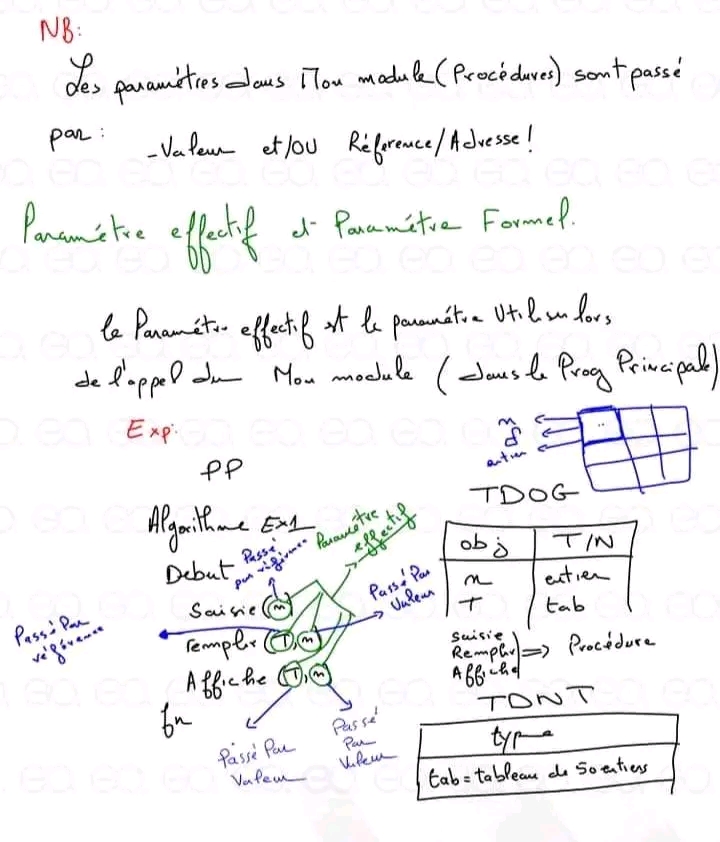 NB:
Les paramètres dans Mon module (Procédures) sont passé
par :
- Valeur et/ou Réference/Adresse!
Paramétre effectif et Paramétre Formel.
le Paramétre effectif est le paramétre Utiliser lors
de l'appel du Mon module ( dans le Prog Principale)
Exp:
PP
n
entier
TDOG
Algorithme Ex1
Paramétre effectif
obj T/N
n entier
T tab
Debut
Passé par référence
Saisie (n)
Passé Par Valeur
Passé Par référence
remplir (T,n)
Affiche (T,n)
fn
Passé Par Valeur
Passé Par Valeur
Saisie
Remplir
Affiche
=> Procédure
TDNT
type
tab = tableau de 50 entiers